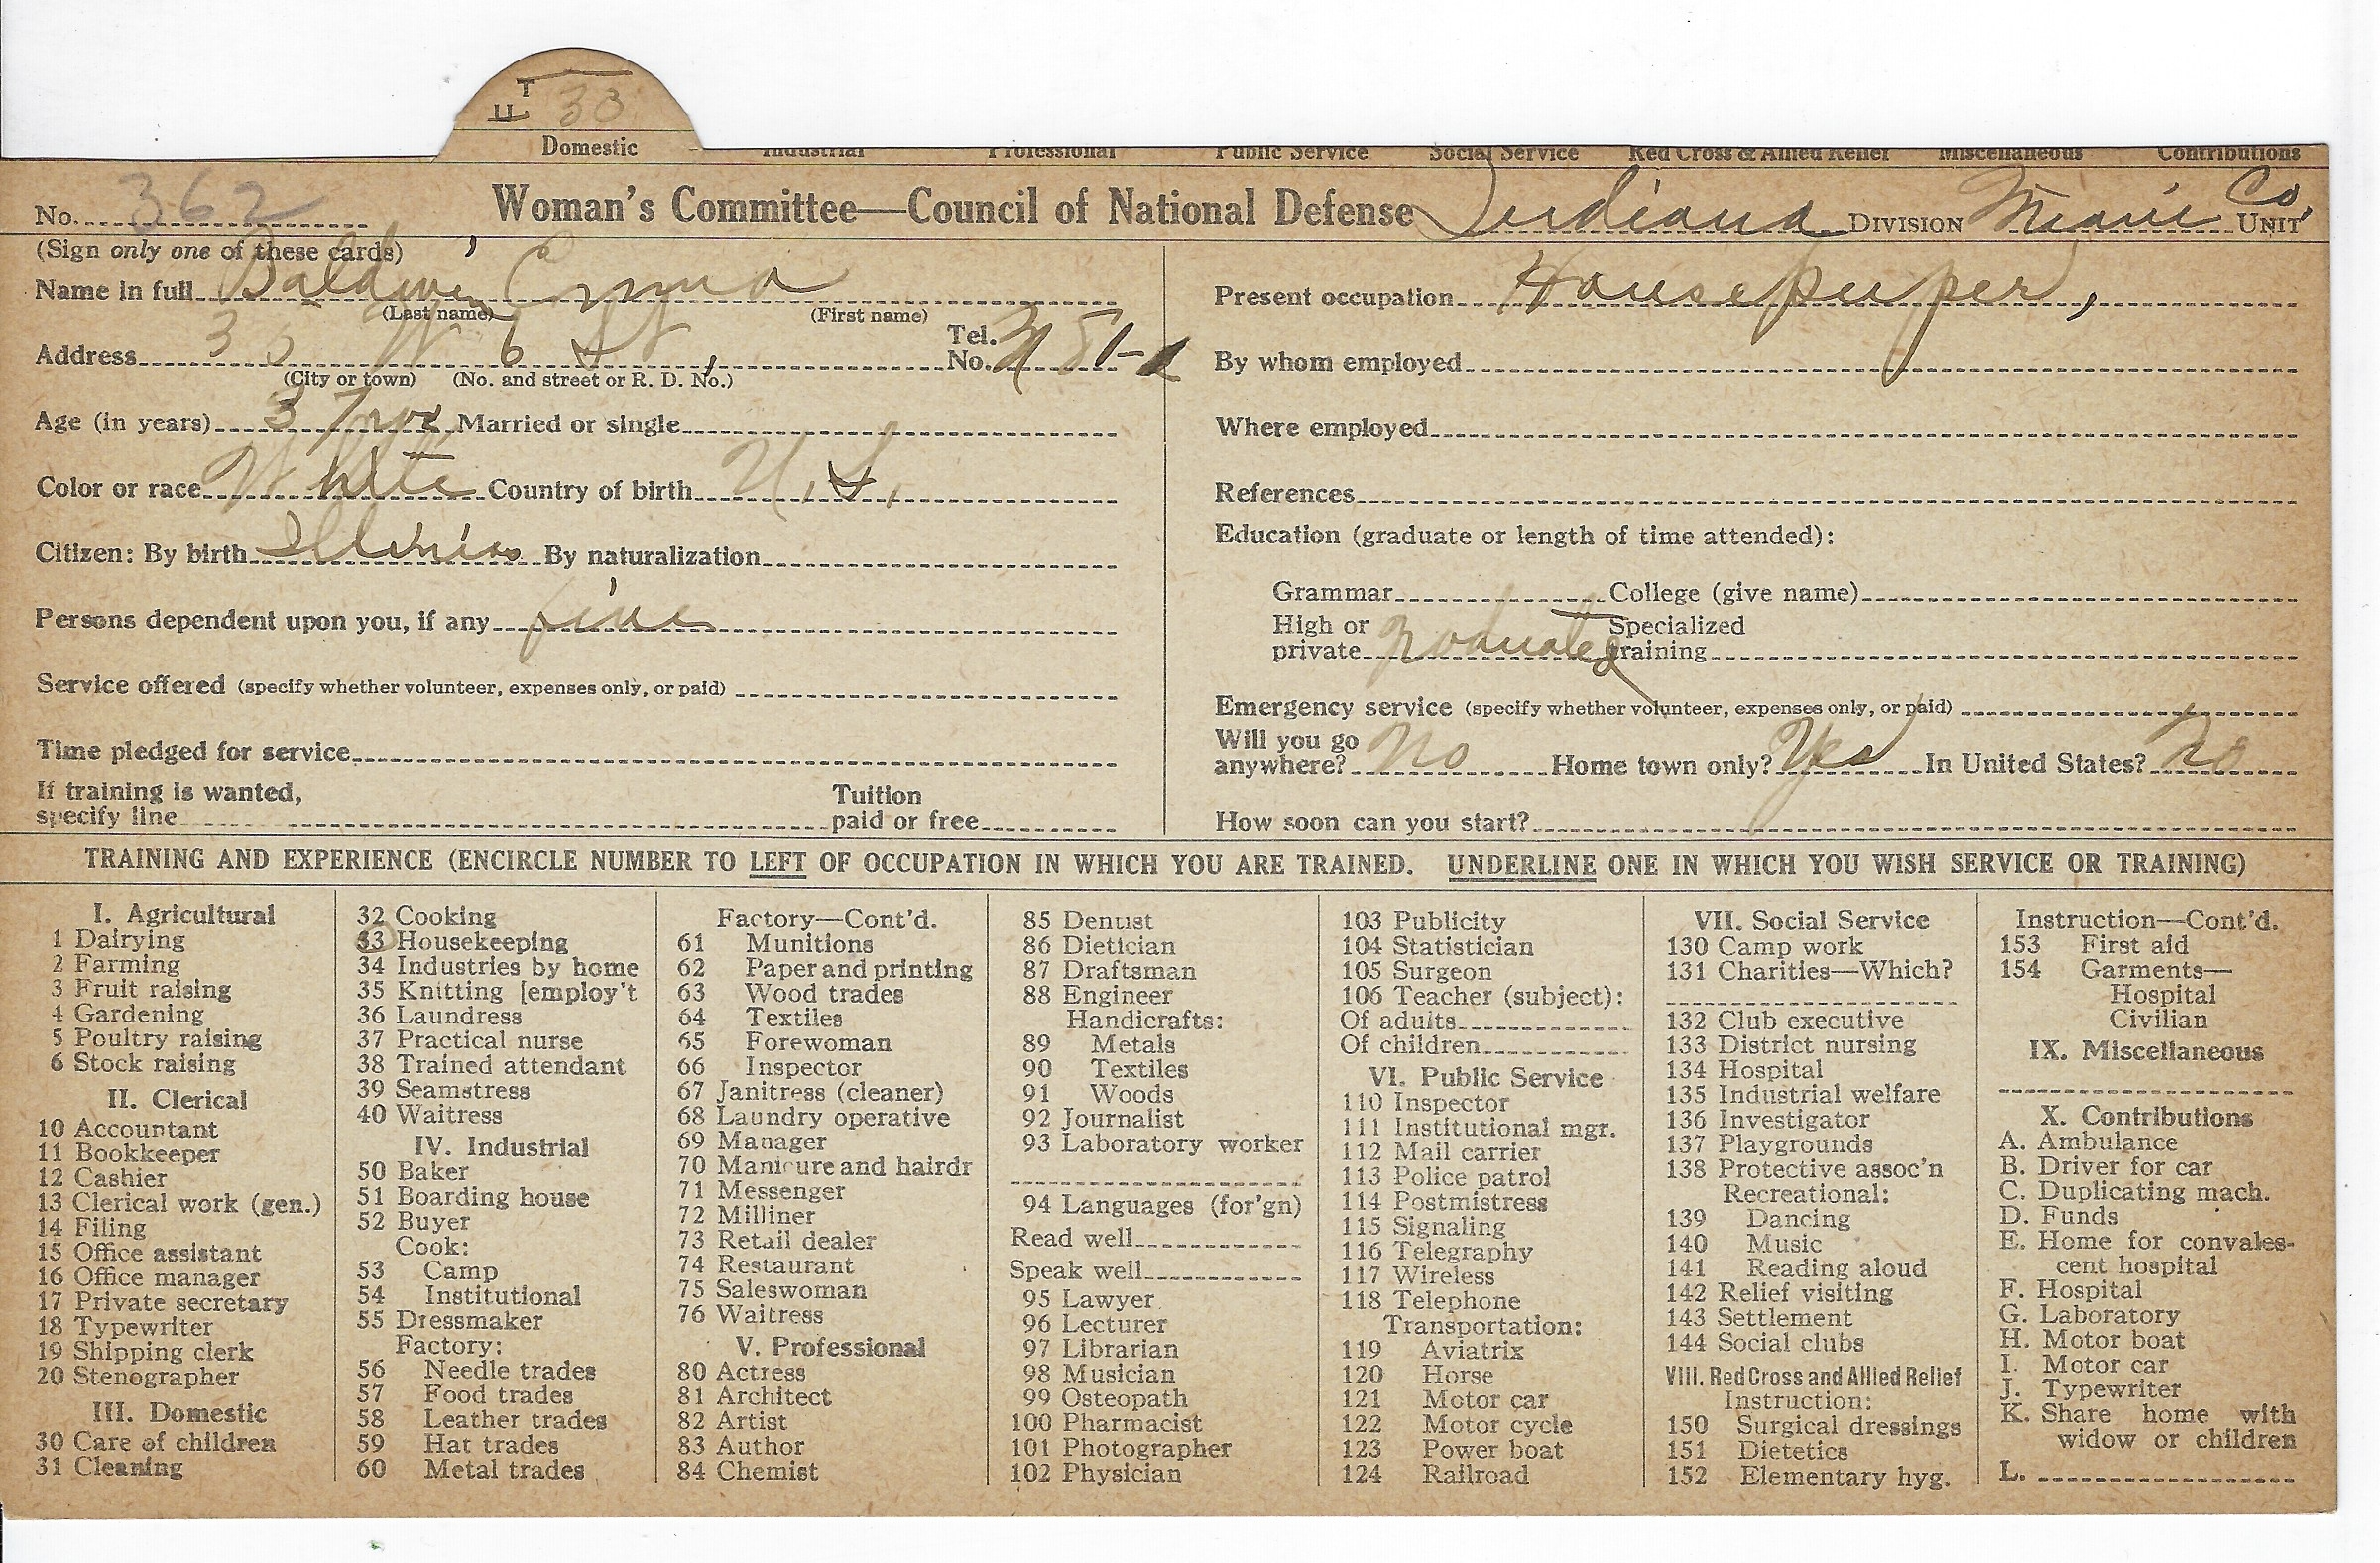 T
U 33
Domestic Industrial Professional Public Service Social Service Red Cross & Allied Relief Miscellaneous Contributions
No. 362 Woman's Committee—Council of National Defense Indiana DIVISION Miami Co. UNIT
(Sign only one of these cards)
Name in full Baldwin, Emma
(Last name) (First name)
Address 35 W 6 St, Tel. No.
(City or town) (No. and street or R. D. No.)
Age (in years) 37 Married or single
Color or race White Country of birth U.S.
Citizen: By birth Illinois By naturalization
Persons dependent upon you, if any five
Service offered (specify whether volunteer, expenses only, or paid)
Time pledged for service
If training is wanted,
specify line Tuition paid or free
Present occupation Housekeeper,
By whom employed
Where employed
References
Education (graduate or length of time attended):
Grammar College (give name)
High or private graduated Specialized training
Emergency service (specify whether volunteer, expenses only, or paid)
Will you go anywhere? No Home town only? Yes In United States? No
How soon can you start?
TRAINING AND EXPERIENCE (ENCIRCLE NUMBER TO LEFT OF OCCUPATION IN WHICH YOU ARE TRAINED. UNDERLINE ONE IN WHICH YOU WISH SERVICE OR TRAINING)
I. Agricultural
1 Dairying
2 Farming
3 Fruit raising
4 Gardening
5 Poultry raising
6 Stock raising
II. Clerical
10 Accountant
11 Bookkeeper
12 Cashier
13 Clerical work (gen.)
14 Filing
15 Office assistant
16 Office manager
17 Private secretary
18 Typewriter
19 Shipping clerk
20 Stenographer
III. Domestic
30 Care of children
31 Cleaning
32 Cooking
33 Housekeeping
34 Industries by home
35 Knitting [employ't
36 Laundress
37 Practical nurse
38 Trained attendant
39 Seamstress
40 Waitress
IV. Industrial
50 Baker
51 Boarding house
52 Buyer
Cook:
53 Camp
54 Institutional
55 Dressmaker
Factory:
56 Needle trades
57 Food trades
58 Leather trades
59 Hat trades
60 Metal trades
Factory—Cont'd.
61 Munitions
62 Paper and printing
63 Wood trades
64 Textiles
65 Forewoman
66 Inspector
67 Janitress (cleaner)
68 Laundry operative
69 Manager
70 Manicure and hairdr
71 Messenger
72 Milliner
73 Retail dealer
74 Restaurant
75 Saleswoman
76 Waitress
V. Professional
80 Actress
81 Architect
82 Artist
83 Author
84 Chemist
85 Dentist
86 Dietician
87 Draftsman
88 Engineer
Handicrafts:
89 Metals
90 Textiles
91 Woods
92 Journalist
93 Laboratory worker
94 Languages (for'gn)
Read well
Speak well
95 Lawyer
96 Lecturer
97 Librarian
98 Musician
99 Osteopath
100 Pharmacist
101 Photographer
102 Physician
103 Publicity
104 Statistician
105 Surgeon
106 Teacher (subject):
Of adults
Of children
VI. Public Service
110 Inspector
111 Institutional mgr.
112 Mail carrier
113 Police patrol
114 Postmistress
115 Signaling
116 Telegraphy
117 Wireless
118 Telephone
Transportation:
119 Aviatrix
120 Horse
121 Motor car
122 Motor cycle
123 Power boat
124 Railroad
VII. Social Service
130 Camp work
131 Charities—Which?
132 Club executive
133 District nursing
134 Hospital
135 Industrial welfare
136 Investigator
137 Playgrounds
138 Protective assoc'n
Recreational:
139 Dancing
140 Music
141 Reading aloud
142 Relief visiting
143 Settlement
144 Social clubs
VIII. Red Cross and Allied Relief
Instruction:
150 Surgical dressings
151 Dietetics
152 Elementary hyg.
Instruction—Cont'd.
153 First aid
154 Garments—
Hospital
Civilian
IX. Miscellaneous
X. Contributions
A. Ambulance
B. Driver for car
C. Duplicating mach.
D. Funds
E. Home for convales-
cent hospital
F. Hospital
G. Laboratory
H. Motor boat
I. Motor car
J. Typewriter
K. Share home with
widow or children
L.